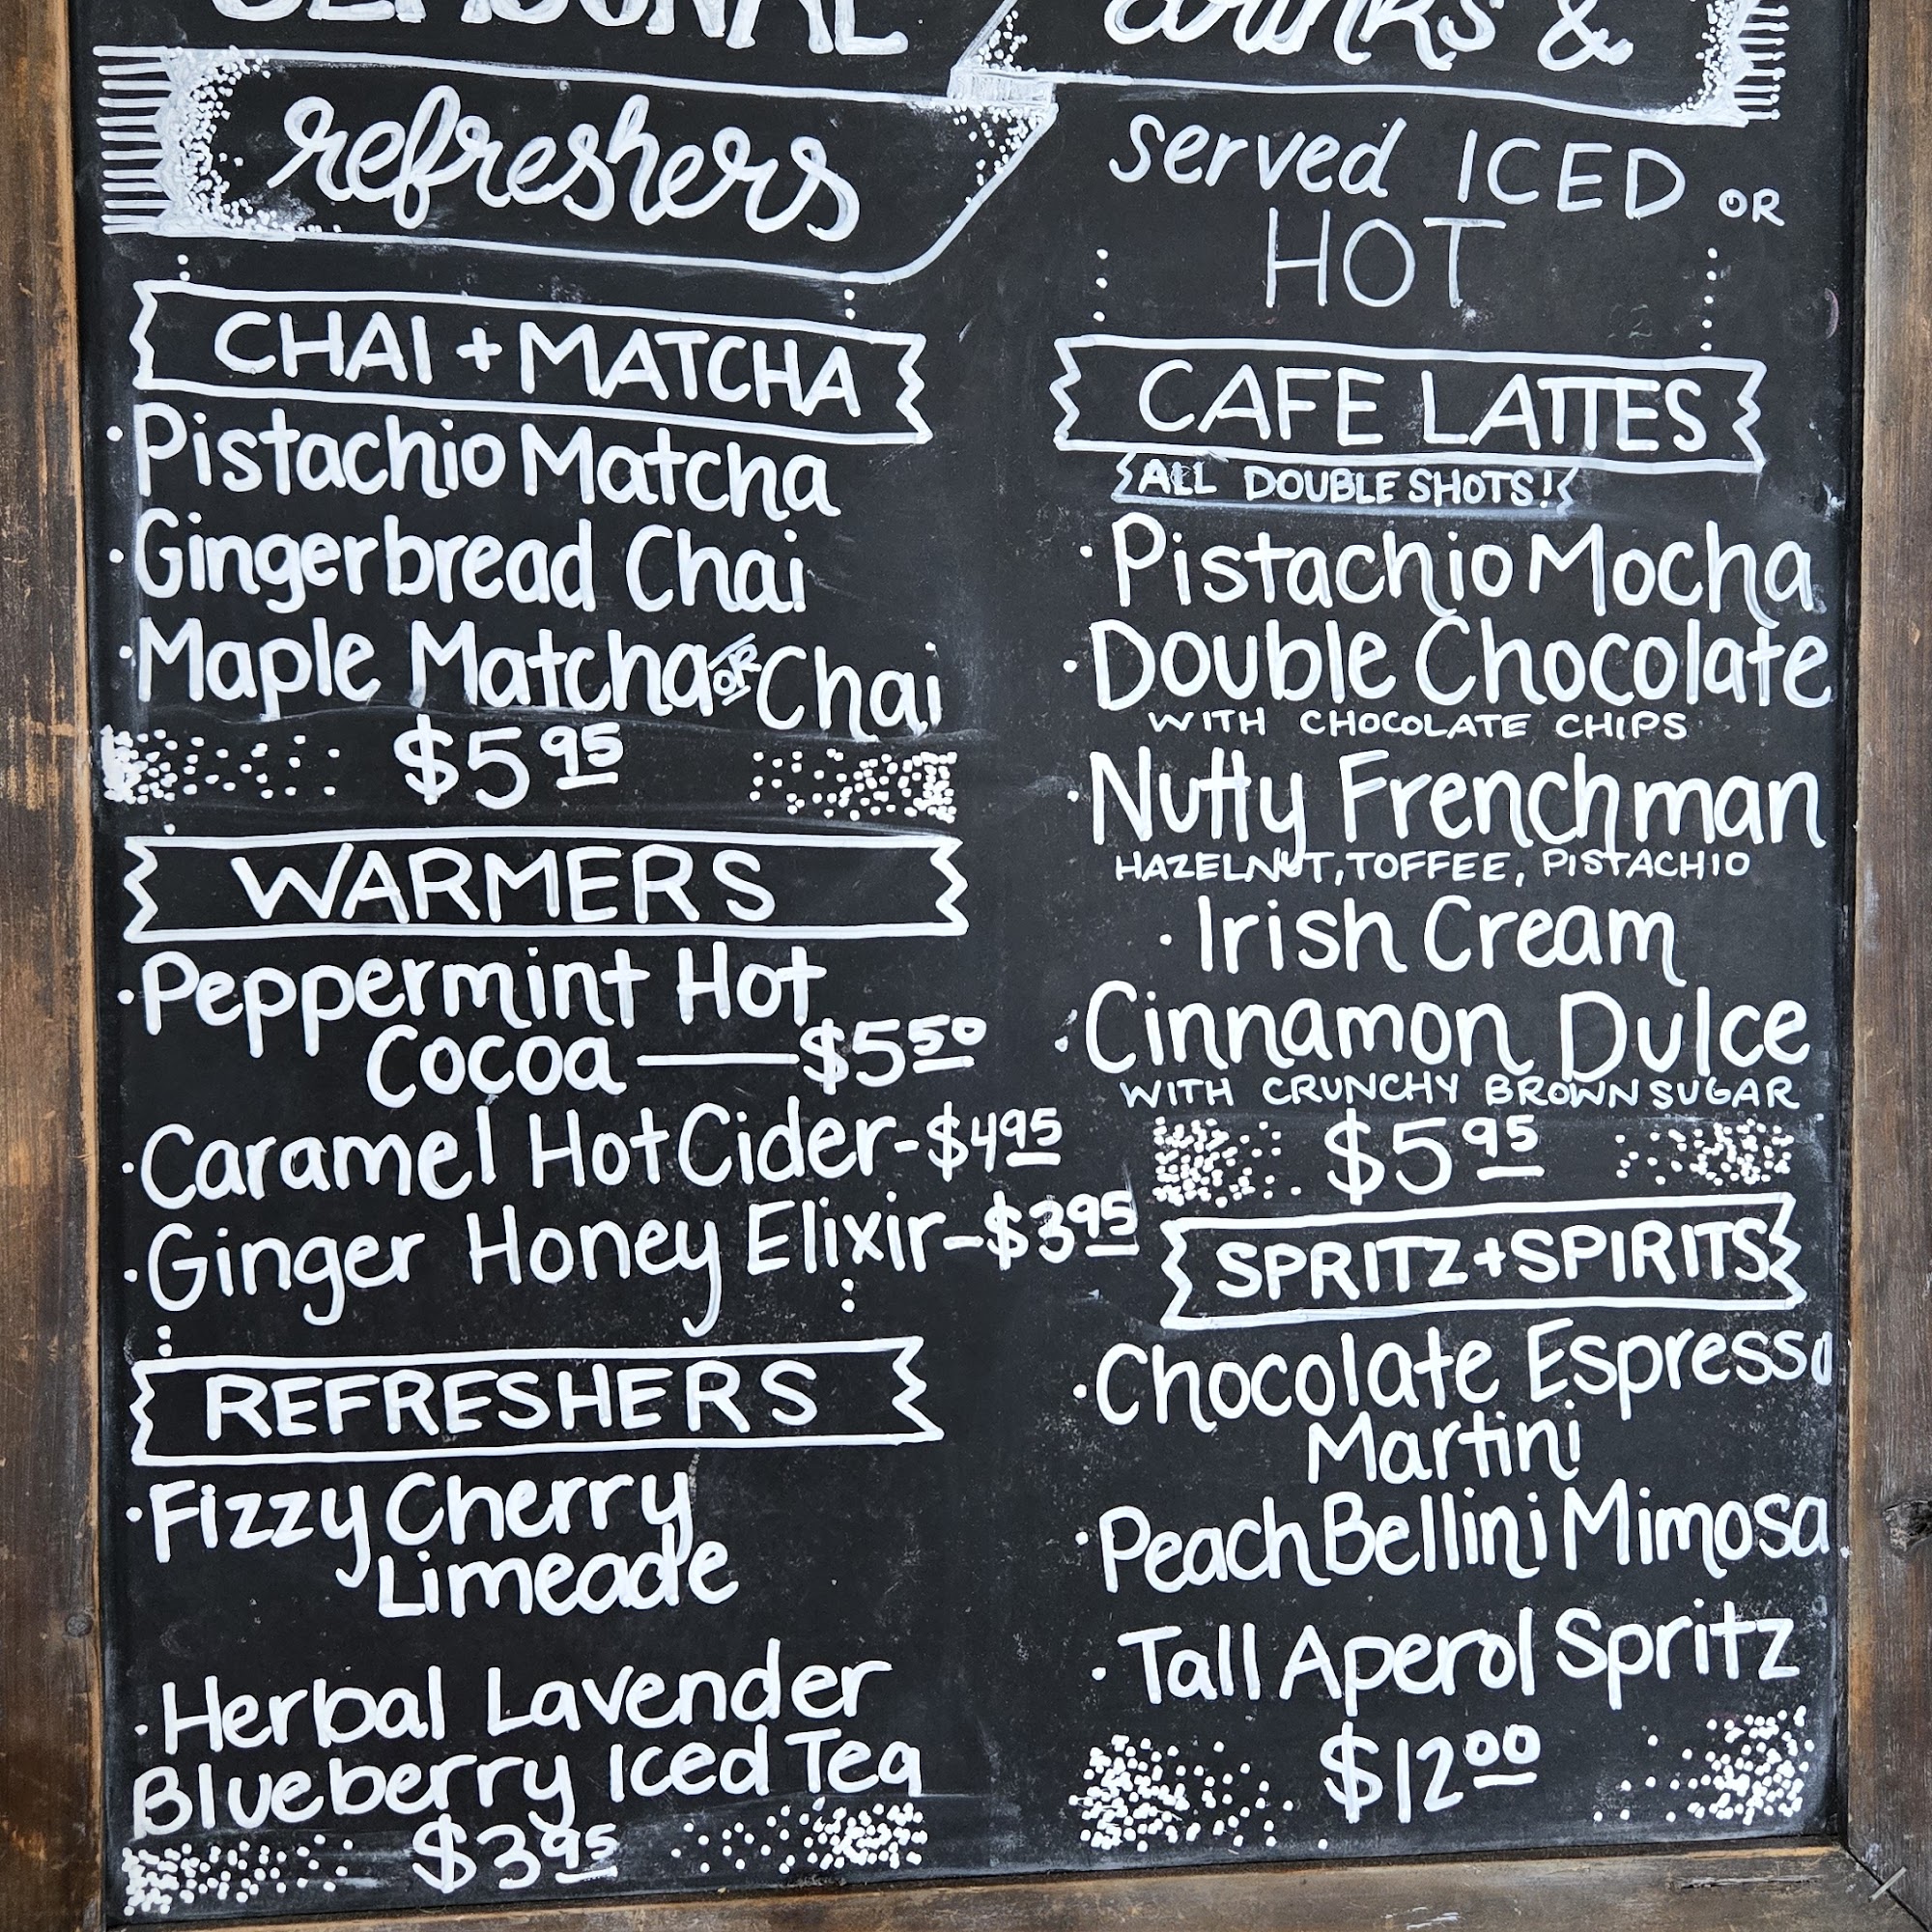 SEASONAL drinks &
refreshers
served ICED OR
HOT
CHAI + MATCHA
· Pistachio Matcha
· Gingerbread Chai
· Maple Matcha OR Chai
$5 95
WARMERS
· Peppermint Hot
Cocoa — $5 50
· Caramel Hot Cider - $4 95
· Ginger Honey Elixir - $3 95
REFRESHERS
· Fizzy Cherry
Limeade
· Herbal Lavender
Blueberry Iced Tea
$3 95
CAFE LATTES
ALL DOUBLE SHOTS!
· Pistachio Mocha
· Double Chocolate
WITH CHOCOLATE CHIPS
· Nutty Frenchman
HAZELNUT, TOFFEE, PISTACHIO
· Irish Cream
· Cinnamon Dulce
WITH CRUNCHY BROWN SUGAR
$5 95
SPRITZ + SPIRITS
· Chocolate Espresso
Martini
· Peach Bellini Mimosa
· Tall Aperol Spritz
$12 00